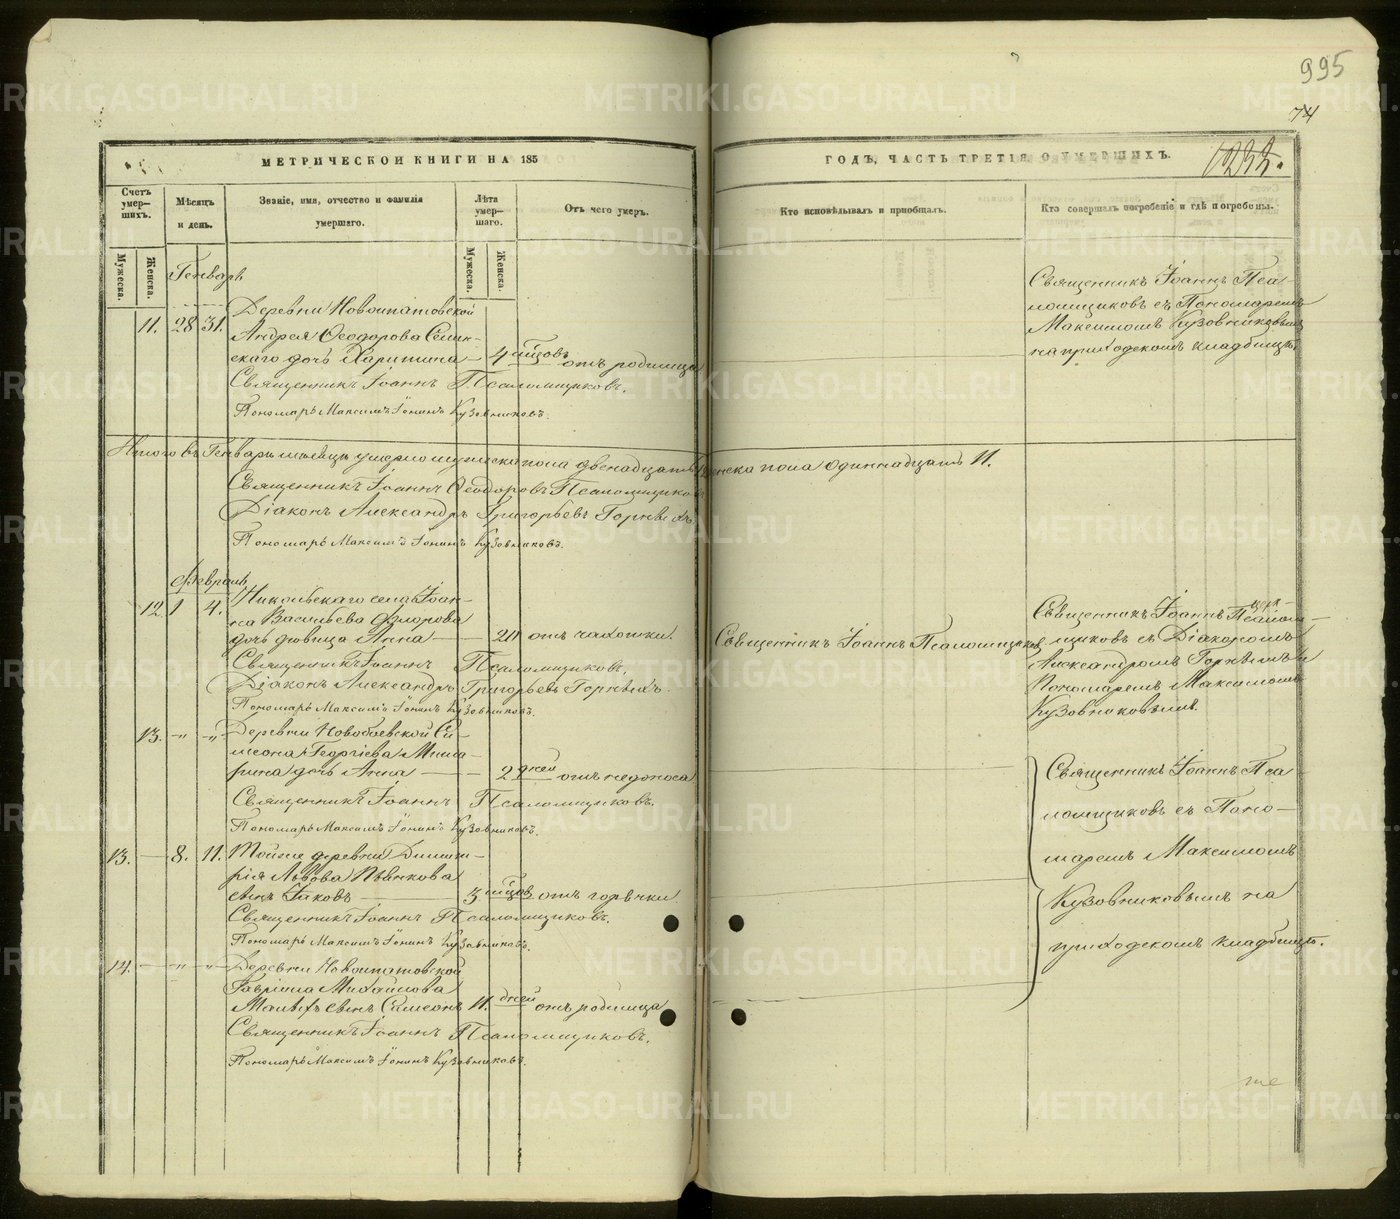 995
74
МЕТРИЧЕСКОЙ КНИГИ НА 185
ГОДЪ, ЧАСТЬ ТРЕТІЯ О УМЕРШИХЪ.
1233.
Счетъ умер-
шихъ.
Мѣсяцъ
и день.
Званіе, имя, отчество и фамилія
умершаго.
Лѣта
умер-
шаго.
Отъ чего умеръ.
Кто исповѣдывалъ и пріобщалъ.
Кто совершалъ погребеніе и гдѣ погребены.
Мужеска.
Женска.
Мужеска.
Женска.
Генварь
11. 28 31. Деревни Новоипатовской
Андрея Ѳеодорова
скаго дочь Харитина 4 мѣсцовъ отъ родимца
Священникъ Іоаннъ Псаломщиковъ.
Пономарь Максимъ Іонинъ Кузовниковъ.
Священникъ Іоаннъ Пса-
ломщиковъ съ Пономаремъ
Максимомъ Кузовниковымъ
на приходскомъ кладбищѣ.
Итого въ Генварѣ мѣсяцѣ умерло мужеска пола двенадцать женска пола одиннадцать 11.
Священникъ Іоаннъ Ѳеодоровъ Псаломщиковъ
Діаконъ Александръ Григорьевъ Горныхъ
Пономарь Максимъ Іонинъ Кузовниковъ.
Февраль
12. 1 4. Никольскаго села Іоан-
на Васильева Флорова
дочь дѣвица Анна 20 отъ чахотки.
Священникъ Іоаннъ Псаломщиковъ.
Діаконъ Александръ Григорьевъ Горныхъ.
Пономарь Максимъ Іонинъ Кузовниковъ.
Священникъ Іоаннъ Псаломщиковъ
Священникъ Іоаннъ Псалом-
щиковъ съ Діакономъ
Александромъ Горнымъ и
Пономаремъ Максимомъ
Кузовниковымъ.
13. " " Деревни Новобоевской Си-
меона Георгіева
дочь Анна 2 дней отъ недоноса
Священникъ Іоаннъ Псаломщиковъ.
Пономарь Максимъ Іонинъ Кузовниковъ.
13. 8. 11. Тойже деревни Димит-
рія Львова Пьянкова
сынъ Іаковъ 3 мѣсцовъ отъ горячки
Священникъ Іоаннъ Псаломщиковъ.
Пономарь Максимъ Іонинъ Кузовниковъ.
14. " " Деревни Новоипатовской
Гавріила Михайлова
Малыхъ сынъ Симеонъ 11. дней отъ родимца
Священникъ Іоаннъ Псаломщиковъ.
Пономарь Максимъ Іонинъ Кузовниковъ.
Священникъ Іоаннъ Пса-
ломщиковъ съ Поно-
маремъ Максимомъ
Кузовниковымъ на
приходскомъ кладбищѣ.
METRIKI.GASO-URAL.RU